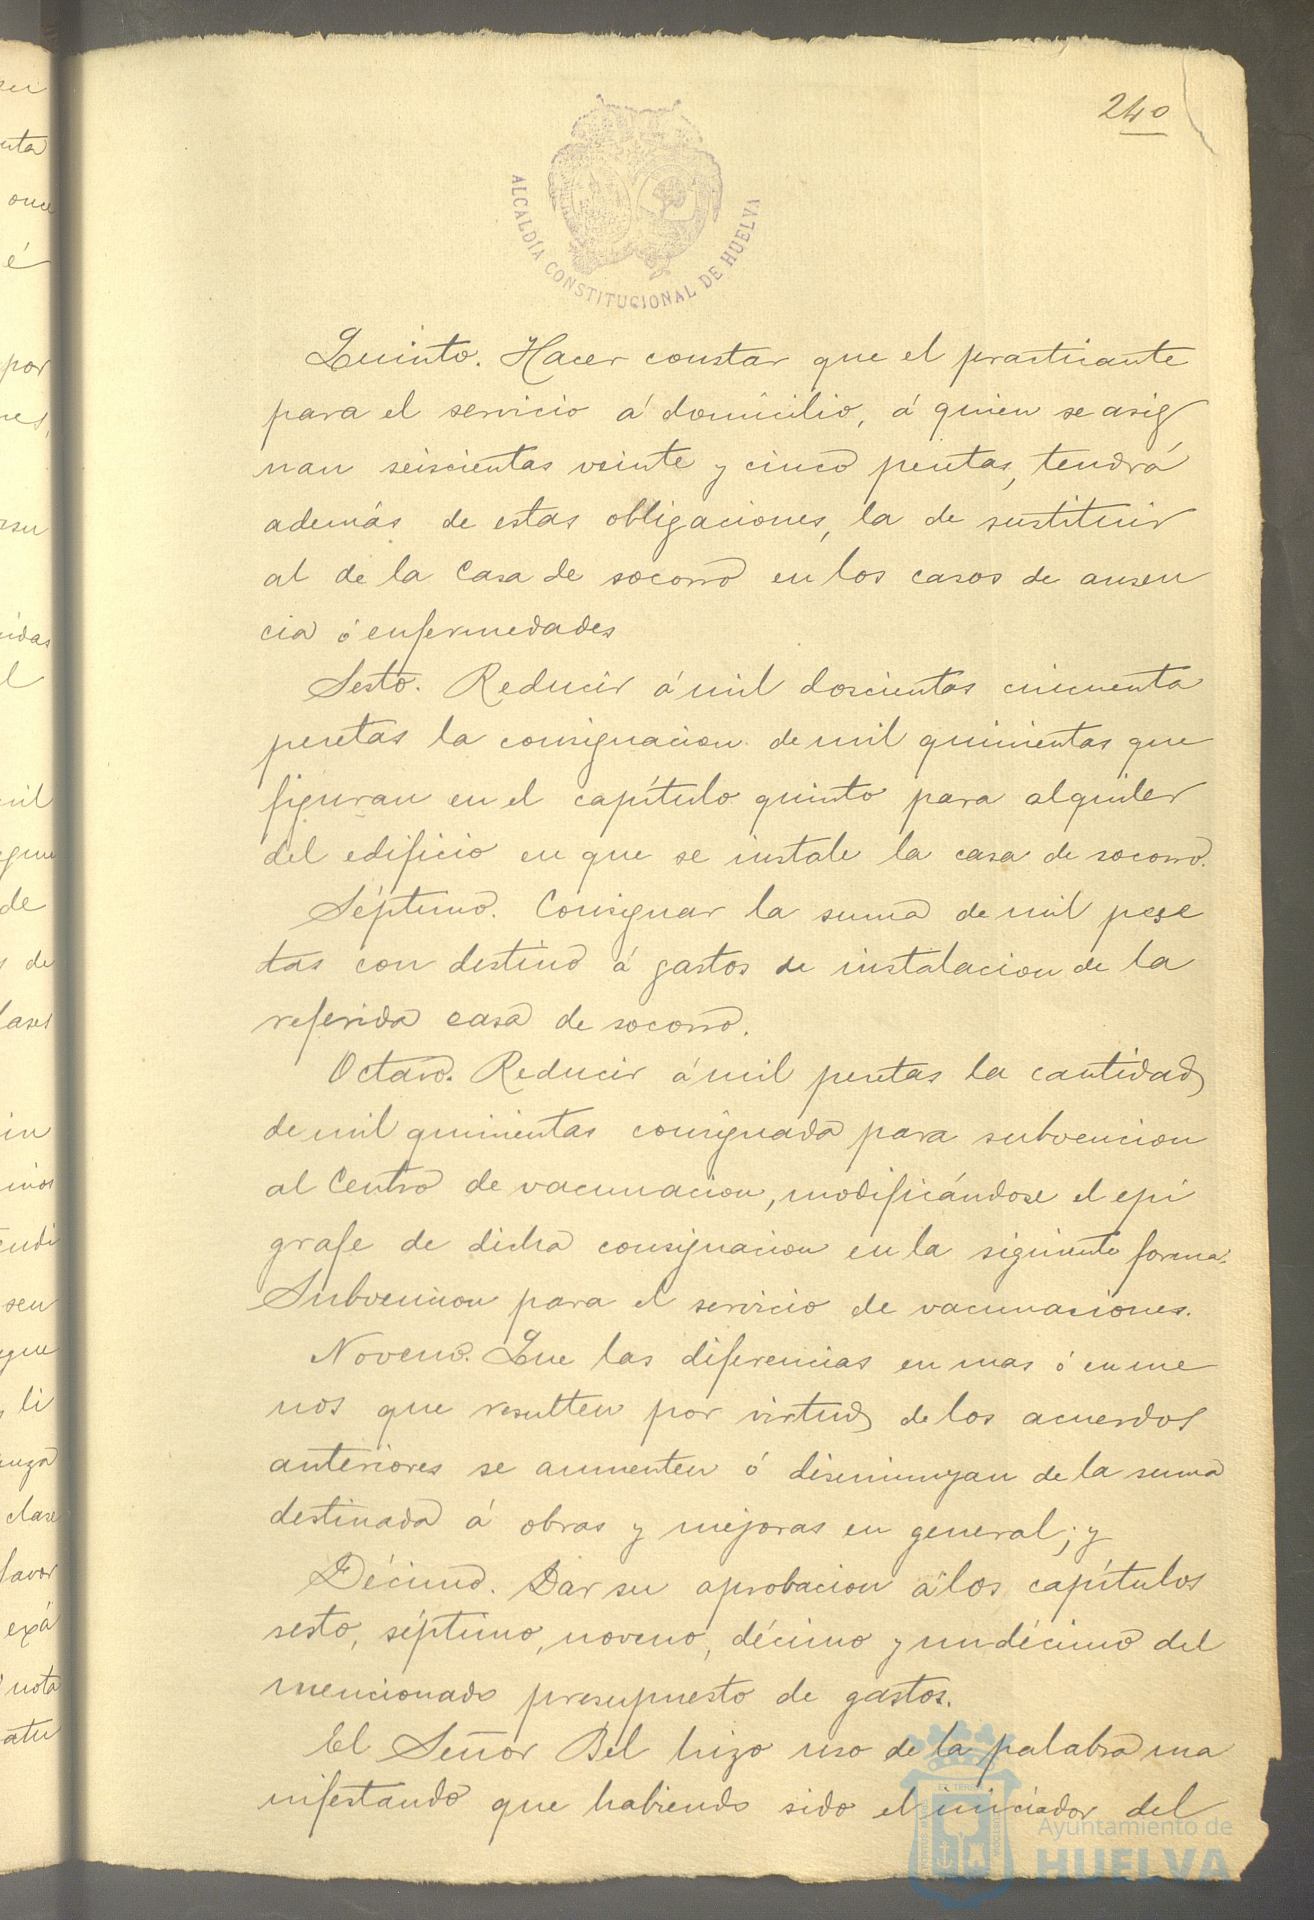 240
ALCALDÍA CONSTITUCIONAL DE HUELVA
Quinto. Hacer constar que el practicante
para el servicio á domicilio, á quien se asig
nan seiscientas veinte y cinco pesetas, tendrá
además de estas obligaciones, la de sustituir
al de la Casa de socorro en los casos de ausen
cia ó enfermedades
Sesto. Reducir á mil doscientas cincuenta
pesetas la consignacion de mil quinientas que
figuran en el capítulo quinto para alquiler
del edificio en que se instale la casa de socorro.
Séptimo. Consignar la suma de mil pese
tas con destino á gastos de instalacion de la
referida casa de socorro.
Octavo. Reducir á mil pesetas la cantidad
de mil quinientas consignada para subvencion
al Centro de vacunacion, modificándose el epí
grafe de dicha consignacion en la siguiente forma:
Subvencion para el servicio de vacunaciones.
Noveno. Que las diferencias en mas ó en me
nos que resulten por virtud de los acuerdos
anteriores se aumenten ó disminuyan de la suma
destinada á obras y mejoras en general; y
Décimo. Dar su aprobacion á los capítulos
sesto, séptimo, noveno, décimo y undécimo del
mencionado presupuesto de gastos.
El Señor Bel hizo uso de la palabra ma
nifestando que habiendo sido el iniciador del
Ayuntamiento de
HUELVA